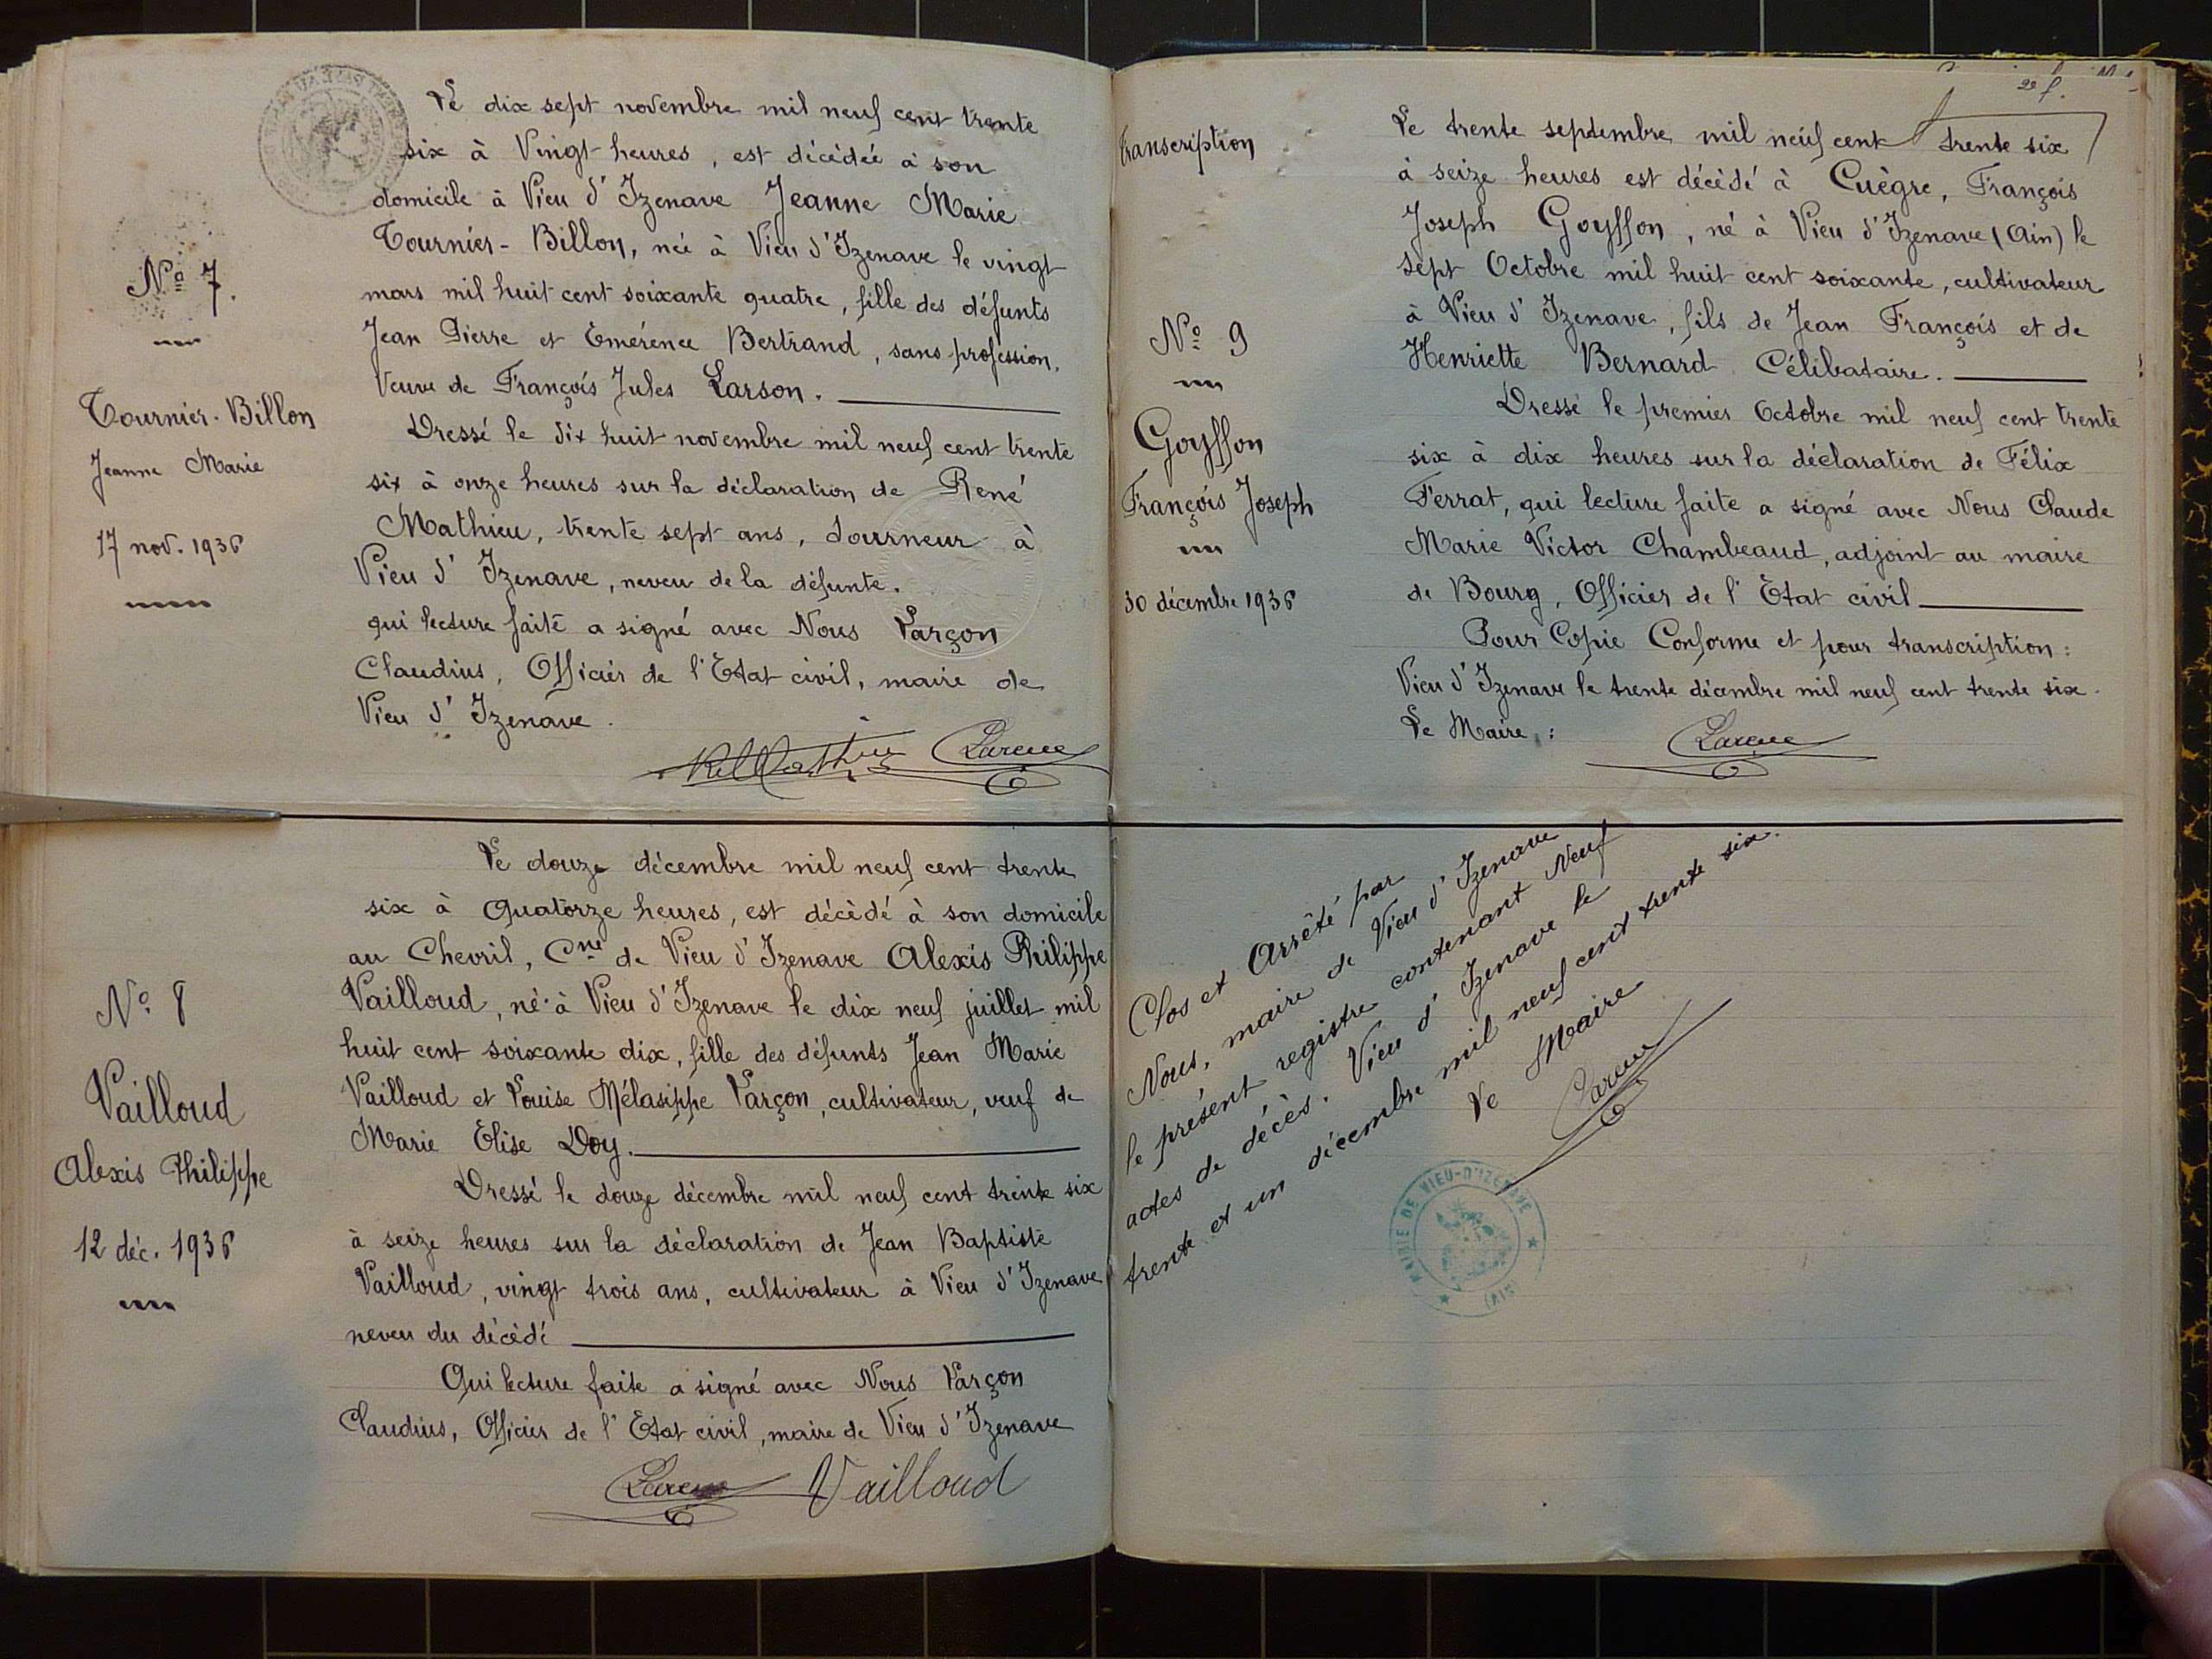 Le dix sept novembre mil neuf cent trente
six à Vingt heures, est décèdée à son
domicile à Vieu d'Izenave Jeanne Marie
Tournier-Billon, née à Vieu d'Izenave le vingt
mars mil huit cent soixante quatre, fille des défunts
Jean Pierre et Emérence Bertrand, sans profession,
Veuve de François Jules Larson.
Dressé le dix huit novembre mil neuf cent trente
six à onze heures sur la déclaration de René
Mathieu, trente sept ans, tourneur à
Vieu d'Izenave, neveu de la défunte.
qui lecture faite a signé avec Nous Larçon
Claudius, Officier de l'Etat civil, maire de
Vieu d'Izenave.
Nº 7.
Tournier-Billon
Jeanne Marie
17 nov. 1936
Le douze décembre mil neuf cent trente
six à Quatorze heures, est décèdé à son domicile
au Chevril, Cne de Vieu d'Izenave Alexis Philippe
Vailloud, né à Vieu d'Izenave le dix neuf juillet mil
huit cent soixante dix, fille des défunts Jean Marie
Vailloud et Louise Mélasippe Larçon, cultivateur, veuf de
Marie Elise Doy.
Dressé le douze décembre mil neuf cent trente six
à seize heures sur la déclaration de Jean Baptiste
Vailloud, vingt trois ans, cultivateur à Vieu d'Izenave
neveu du décèdé
Qui lecture faite a signé avec Nous Larçon
Claudius, Officier de l'Etat civil, maire de Vieu d'Izenave
Vailloud
Nº 8
Vailloud
Alexis Philippe
12 déc. 1936
2e f.
Transcription
Le trente septembre mil neuf cent trente six
à seize heures est décèdé à Cuègre, François
Joseph Goyffon, né à Vieu d'Izenave (Ain) le
sept Octobre mil huit cent soixante, cultivateur
à Vieu d'Izenave, fils de Jean François et de
Henriette Bernard Célibataire.
Dressé le premier Octobre mil neuf cent trente
six à dix heures sur la déclaration de Félix
Ferrat, qui lecture faite a signé avec Nous Claude
Marie Victor Chambeaud, adjoint au maire
de Bourg, Officier de l'Etat civil
Pour Copie Conforme et pour transcription:
Vieu d'Izenave le trente décembre mil neuf cent trente six.
Le Maire:
Nº 9
Goyffon
François Joseph
30 décembre 1936
Clos et Arrêté par
Nous, maire de Vieu d'Izenave
le présent registre contenant Neuf
actes de décès. Vieu d'Izenave le
trente et un décembre mil neuf cent trente six.
Le Maire
MAIRIE DE VIEU-D'IZENAVE
(AIN)